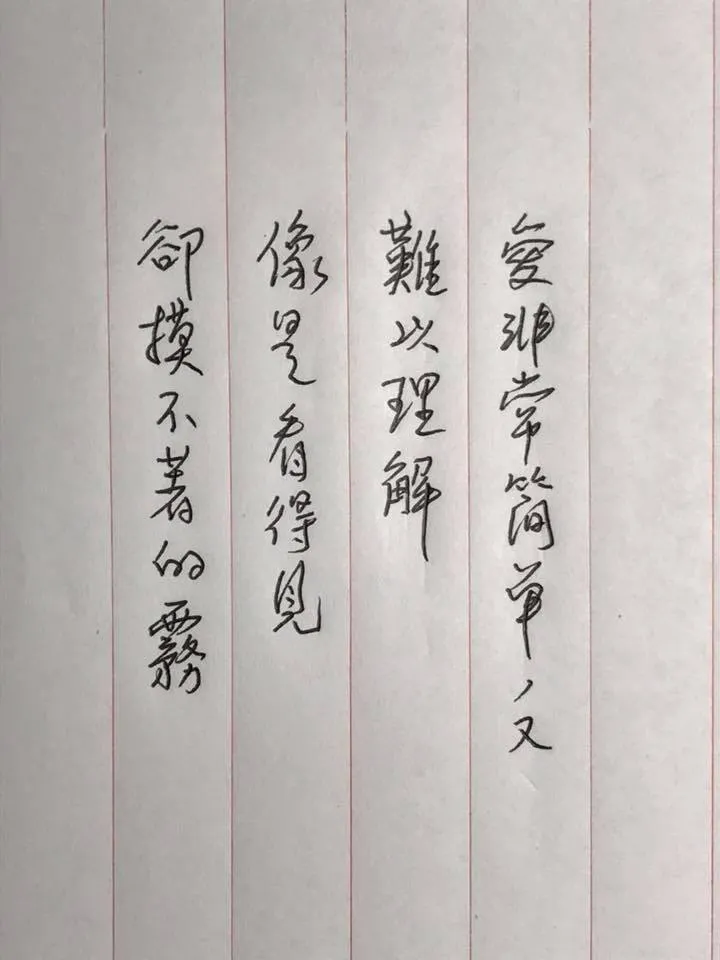 愛非常简单，又
難以理解
像是看得見
卻摸不著的霧